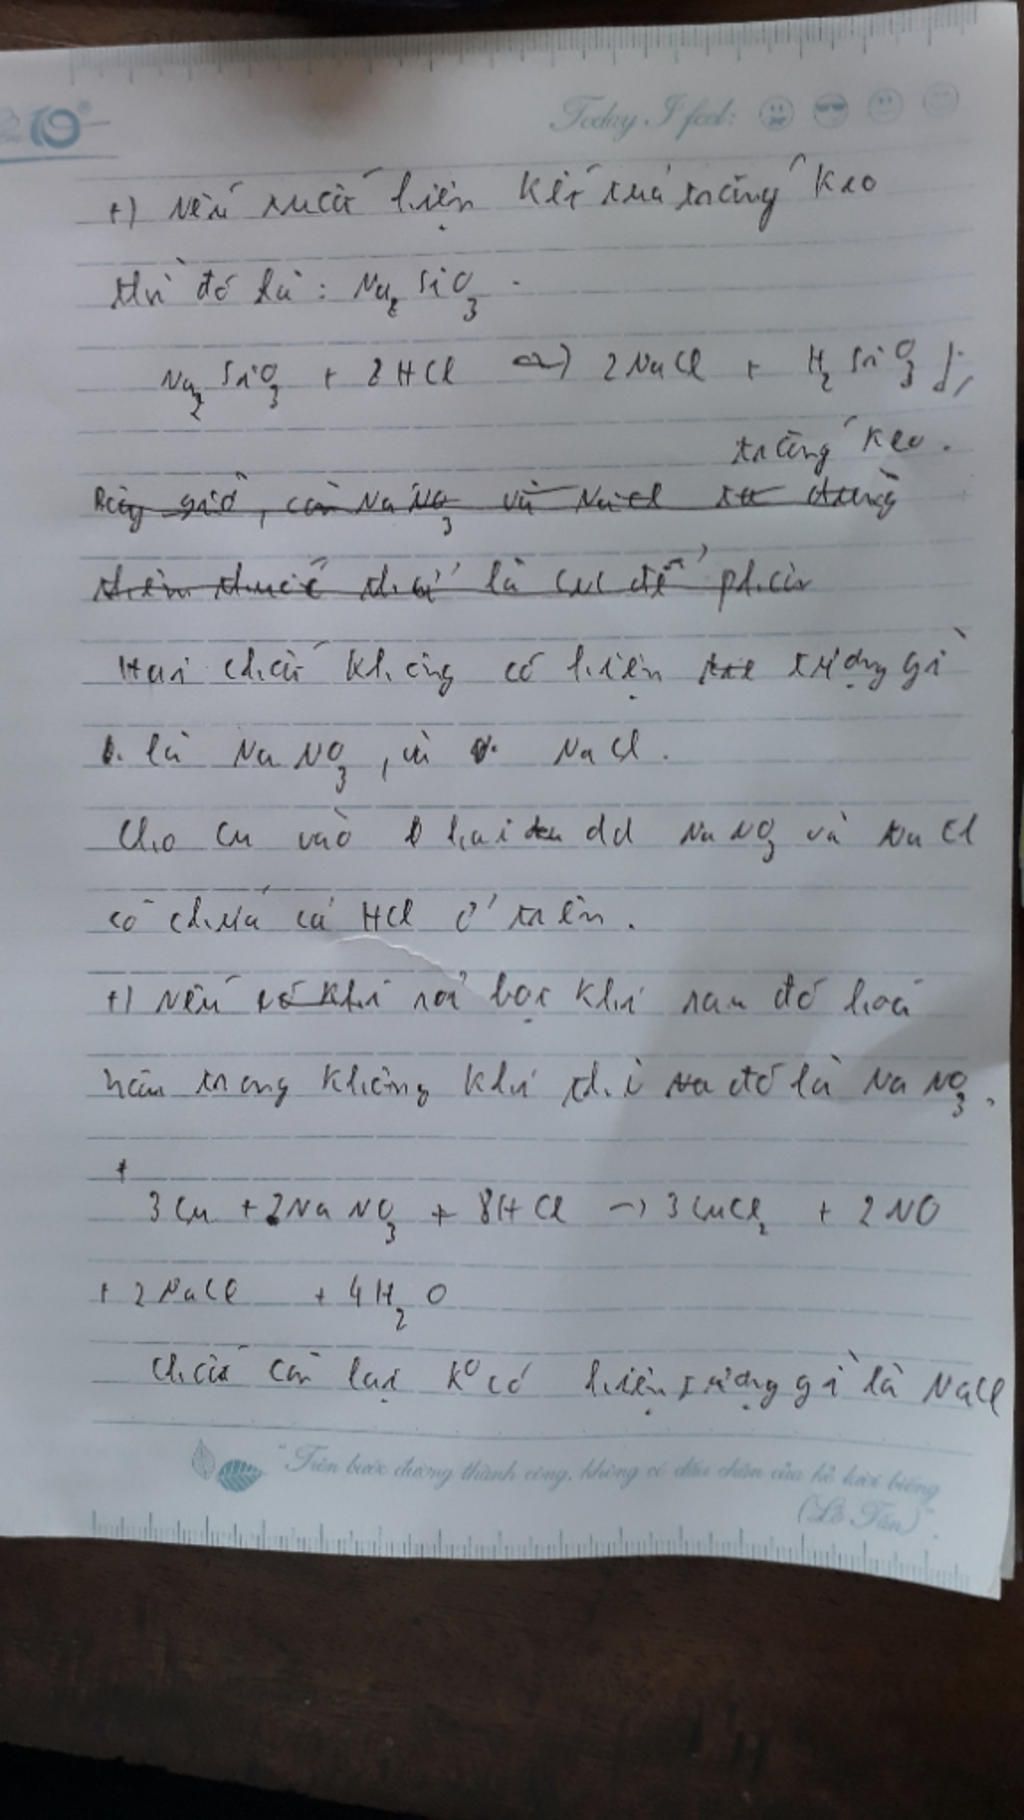 Today I feel:
+) Nếu xuất hiện kết tủa trắng keo
thì đó là: Na2SiO3.
Na2SiO3 + 2HCl → 2NaCl + H2SiO3↓
trắng keo.
Bây giờ, còn NaNO3 và NaCl
thêm thuốc thử là Cu để phân
Hai chất không có hiện tượng gì
là NaNO3, và NaCl.
Cho Cu vào hai dd NaNO3 và NaCl
có chứa cả HCl ở trên.
+) Nếu có khí sủi bọt khí sau đó hoá
nâu trong không khí thì đó là NaNO3.
+
3Cu + 2NaNO3 + 8HCl → 3CuCl2 + 2NO
+ 2NaCl + 4H2O
Chất còn lại k0 có hiện tượng gì là NaCl
"Trên bước đường thành công, không có dấu chân của kẻ lười biếng
(Lỗ Tấn)".